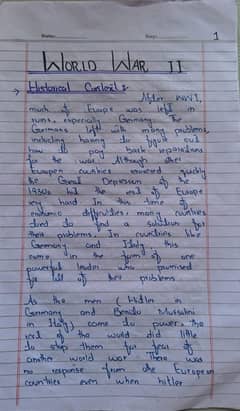 1
WORLD WAR II
→ Historical Context:
After WWI,
much of Europe was left in
ruins, especially Germany. The
Germans left with many problems,
including having to figure out
how to pay back reparations
for the war. Although other
European countries recovered quickly
the Great Depression of the
1930s hit the rest of Europe
very hard. In this time of
economic difficulties many countries
tried to find a solution for
their problems. In countries like
Germany, and Italy, this
came in the form of one
powerful leader who promised
for all of their problems.
As the men (Hitler in
Germany and Benito Mussolini
in Italy) come to power, the
rest of the world did little
to stop them for fear of
another world war. There was
no response from the European
countries even when hitler